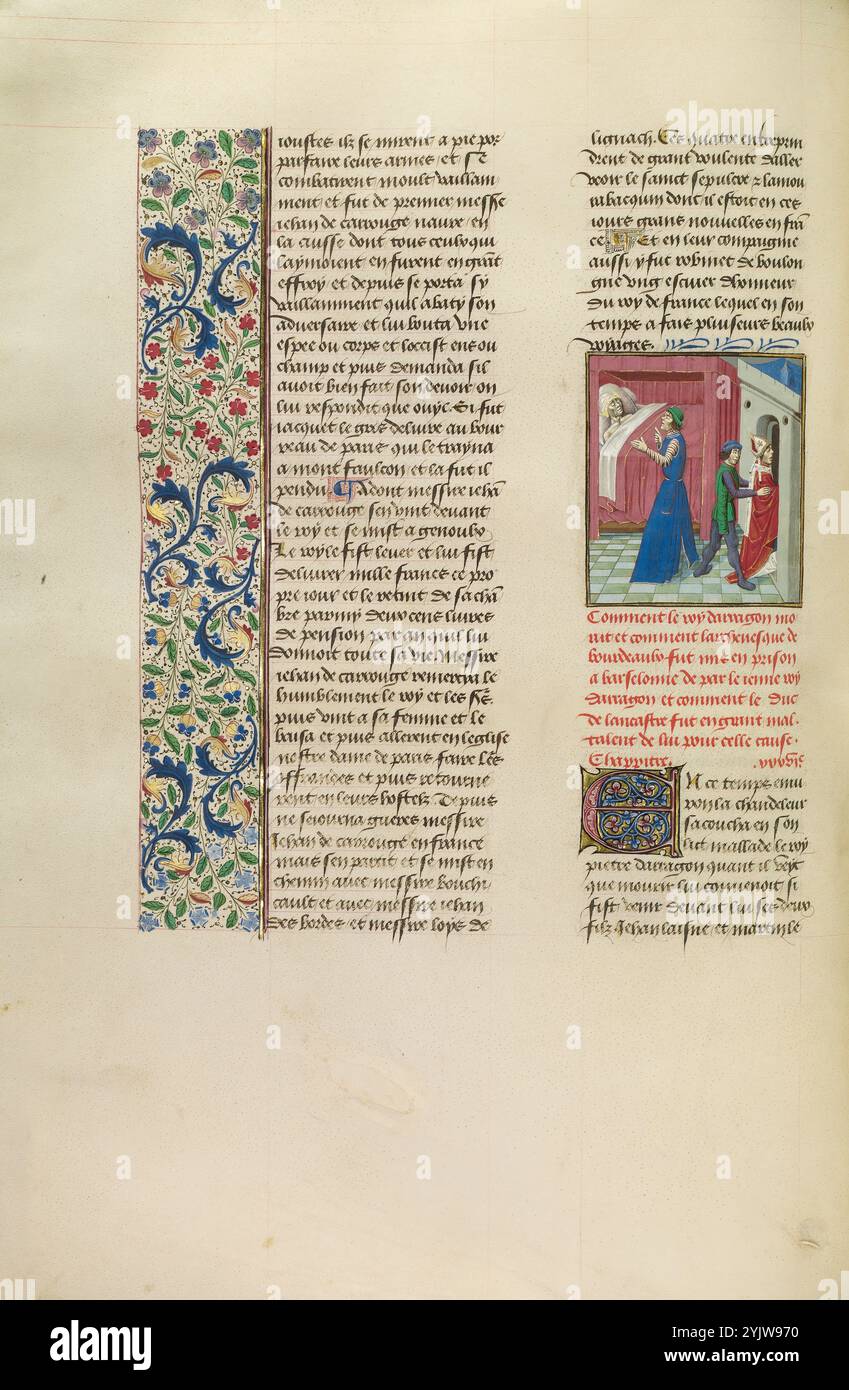 ioustes ilz se mirent a pie por
parfaire leurs armes et se
combatirent moult vaillam
ment et fut de premier messire
iehan de carrouge navre en
la cuisse dont tous ceulx qui
laymoient en furent en grant
effroy et depuis se porta sy
vaillamment quil abaty son
adversaire et lui bouta une
espee ou corps et loccist en ou
champ et puis demanda sil
avoit bien fait son devoir on
lui respondit que ouyl. Si fut
iacquet le gris delivre au bour
reau de paris qui le trayna
a mont faulcon et la fut il
pendu. Adont messire iehan
de carrouge sen vint devant
le roy et se mist a genoulx
Le roy le fist lever et lui fist
delivrer mille frances ce pro
pre iour et le retint de sa cham
bre parmy deux cens livres
de pension par an qui lui
donnoit toute sa vie. Messire
iehan de carrouge remercia le
humblement le roy et les srs.
puis vint a sa femme et le
baisa et puis allerent en leglise
nostre dame de paris faire les
offrandes et puis retourne
rent en leurs hostelz. Depuis
ne seiourna gueres messire
Iehan de carrouge en france
mais sen partit et se mist en
chemin avec messire bouchi
cault et avec messire iehan
des bordes et messire loys de
lignach. Ces quatre entreprin
drent de grant voulente daller
veoir le sainct sepulcre & lamou
rabacquin dont il estoit en ces
iours grans nouvelles en fran
ce. Et en leur compaignie
aussi y fut robinet de boulon
gne ung escuier dhonneur
du roy de france lequel en son
temps a fais pluiseurs beaulx
voyages.
Comment le roy darragon mo
rut et comment larchevesque de
bourdeaulx fut mis en prison
a barselonne de par le ienne roy
darragon et comment le duc
de lancastre fut en grant mal
talent de lui pour celle cause.
Chappitre.
En ce temps envi
ron la chandeleur
sacoucha en son
lict mallade le roy
pietre darragon quant il veyt
que mourir lui convenoit si
fist venir devant lui ses deux
filz Jehan laisne et martin le
alamy
Image ID: 2YJW970
www.alamy.com